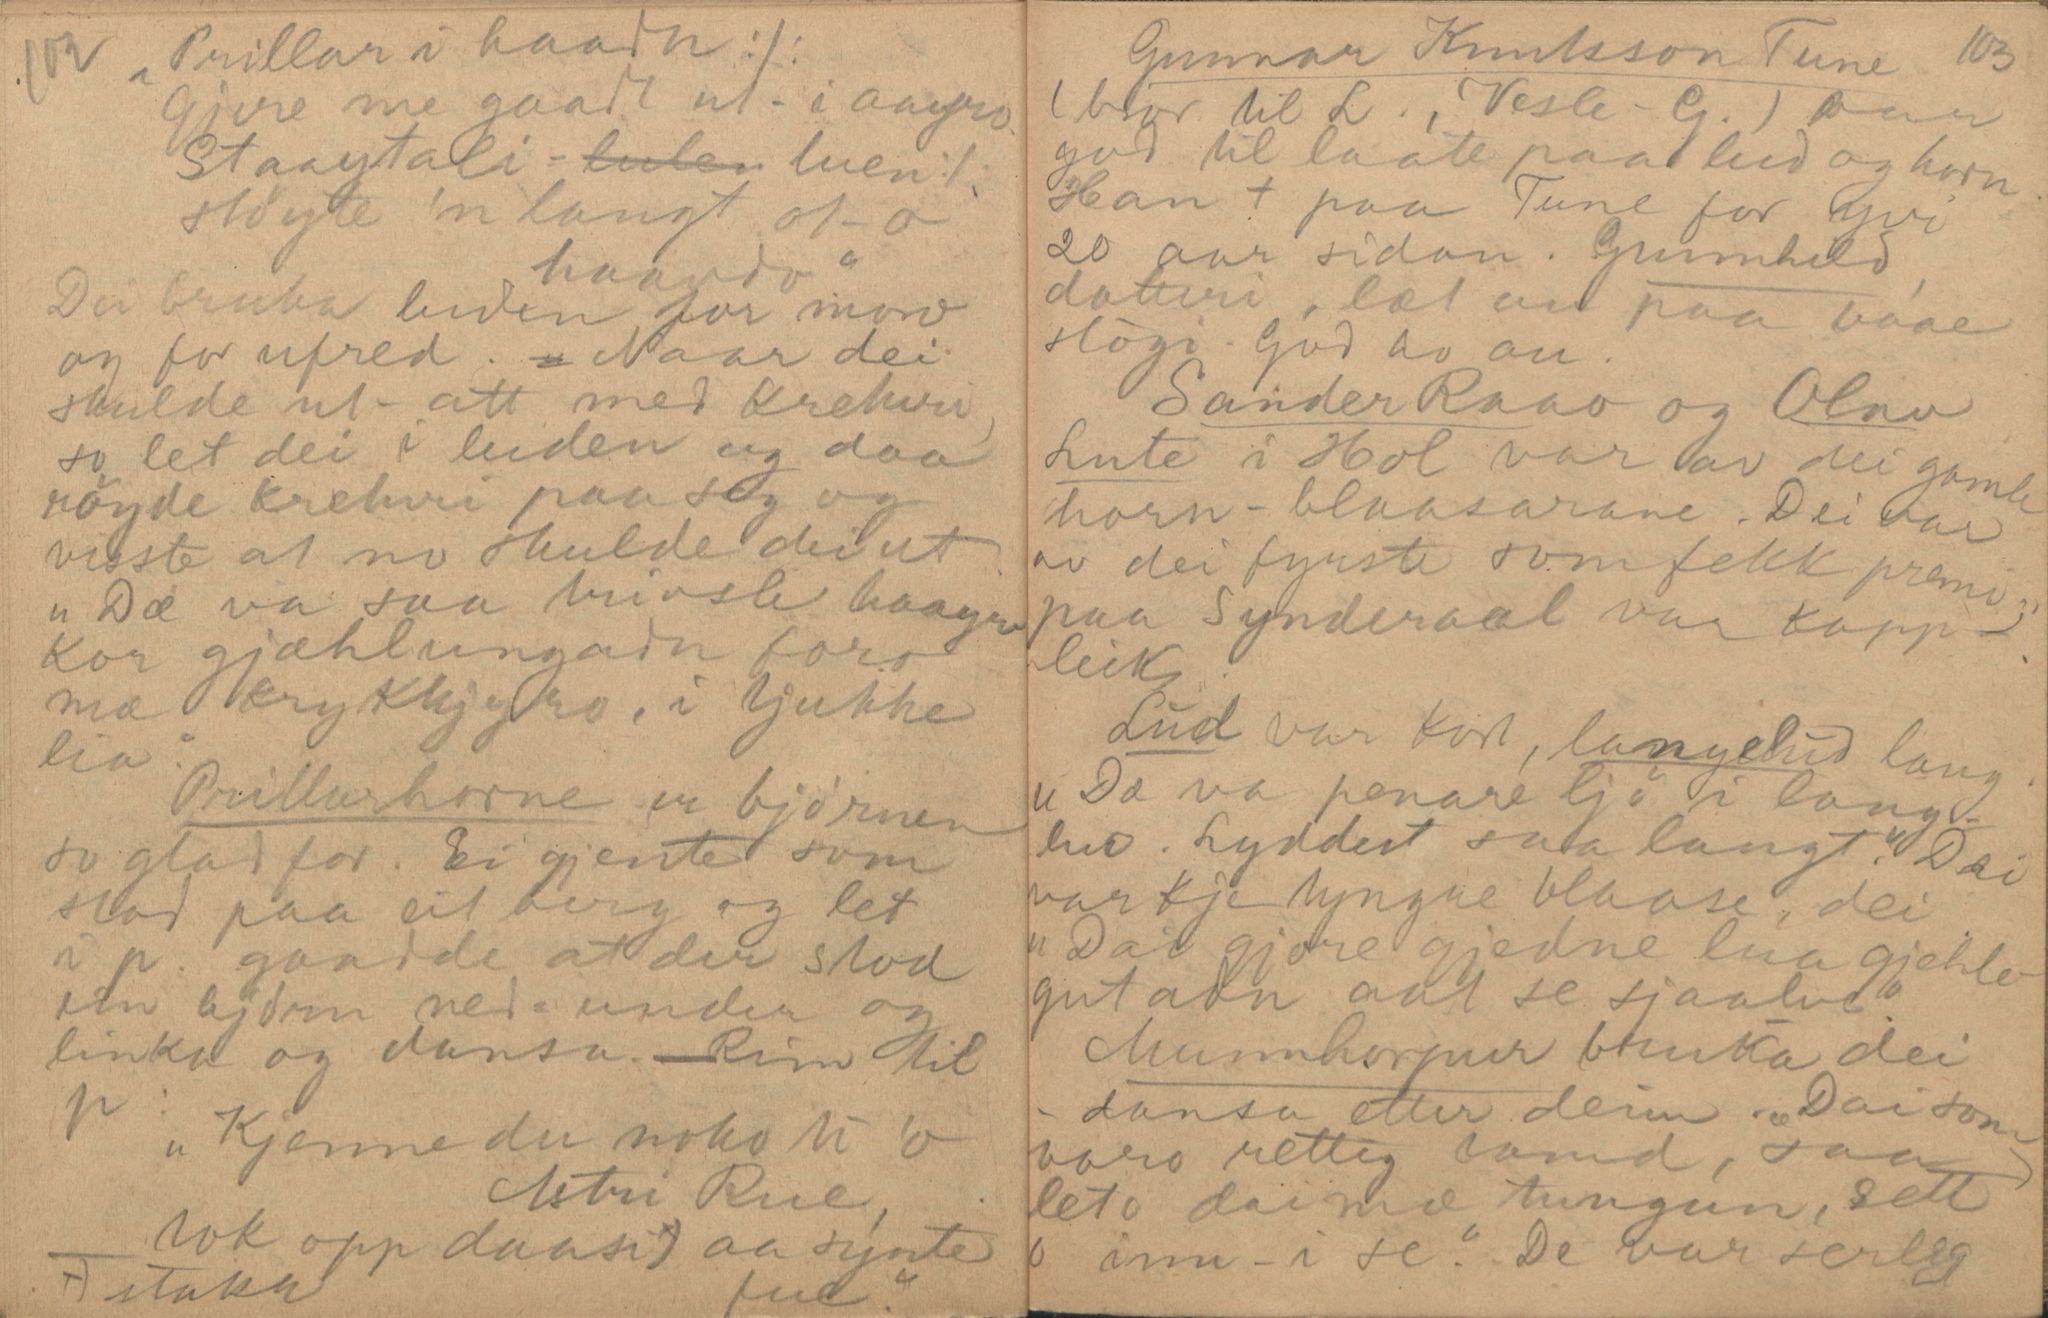 102
„Prillar i haadn :/:
Gjere me gaadt ut-i aagro.
Staaytali - lulen luen :/:
sløyte 'n langt ot-o
haando"
Dei bruka luden for moro
og for ufred. – Naar dei
skulde ut-att med krekuri,
so let dei i luden og daa
røyde krekuri paa seg og
visste at no skulde dei ut.
„Dæ va saa trivsle haagro
kor gjæhlungadn foro
mæ krykkjyro, i tjukke
lia".
Prillarhorne er bjørnen
so glad for. Ei gjente som
stod paa eit berg og let
i p. gaadde at der stod
ein bjørn ned-under og
linka og dansa. – Rim til
p:
„Kjenne du noko ti 'o
Astri Rue,
tok opp daasi +) aa synte
fue."
+) staka
103
Gunnar Knutsson Tune
(bror til L., Vesle-G.) var
god til laate paa lud og horn.
Han † paa Tune for yvi
20 aar sidan. Gunnhild,
dotteri, læt au paa baae
slögi. God ho au.
Sander Raao og Olav
Lute i Hol var av dei gamle
horn-blaasarane. Dei var
av dei fyrste som fekk premi
paa Synderaal var kapp-
leik.
Lud var kort, langelud lang.
„Dæ va penare ljo i lang-
lud. Lyddest saa langt." Dei
var kje tyngre blaase, dei
„Dai gjore gjedne lua gjehle-
gutadn aat se sjaalve"
Munnhorpur bruka dei
- dansa etter deim. „Dai som
varo rettig tamd, saa
leto dai mæ tungun, sett
o inn-i se." De var serleg